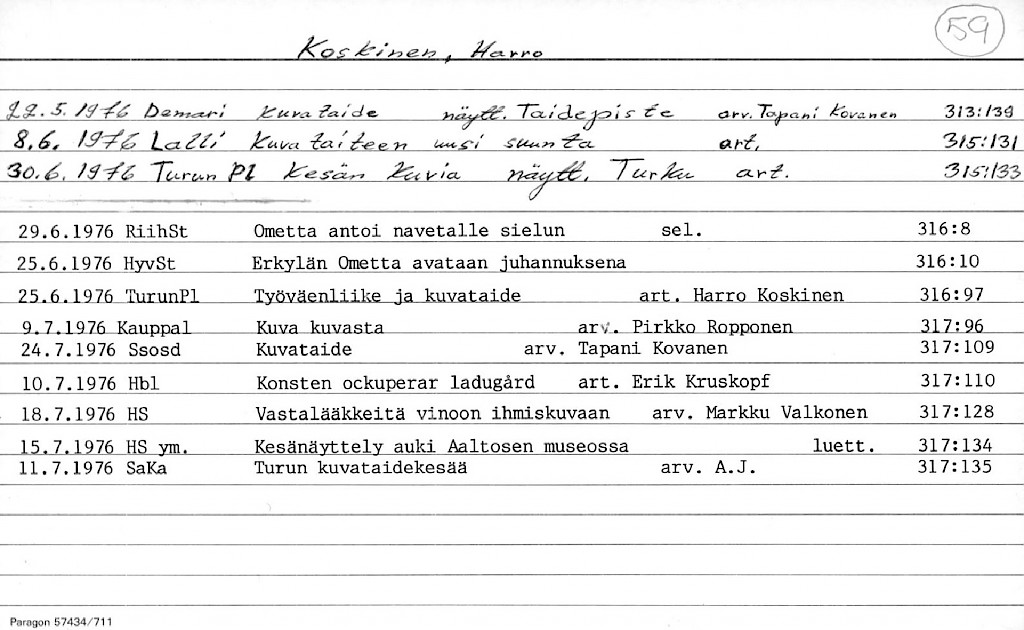 59
Koskinen, Harro
22.5.1976 Demari kuvataide näytt. Taidepiste arv. Tapani Kovanen 313:139
8.6.1976 Lalli kuvataiteen uusi suunta art, 315:131
30.6.1976 Turun Pl Kesän kuvia näytt. Turku art. 315:133
29.6.1976 RiihSt Ometta antoi navetalle sielun sel. 316:8
25.6.1976 HyvSt Erkylän Ometta avataan juhannuksena 316:10
25.6.1976 TurunPl Työväenliike ja kuvataide art. Harro Koskinen 316:97
9.7.1976 Kauppal Kuva kuvasta arv. Pirkko Ropponen 317:96
24.7.1976 Ssosd Kuvataide arv. Tapani Kovanen 317:109
10.7.1976 Hbl Konsten ockuperar ladugård art. Erik Kruskopf 317:110
18.7.1976 HS Vastalääkkeitä vinoon ihmiskuvaan arv. Markku Valkonen 317:128
15.7.1976 HS ym. Kesänäyttely auki Aaltosen museossa luett. 317:134
11.7.1976 SaKa Turun kuvataidekesää arv. A.J. 317:135
Paragon 57434/711